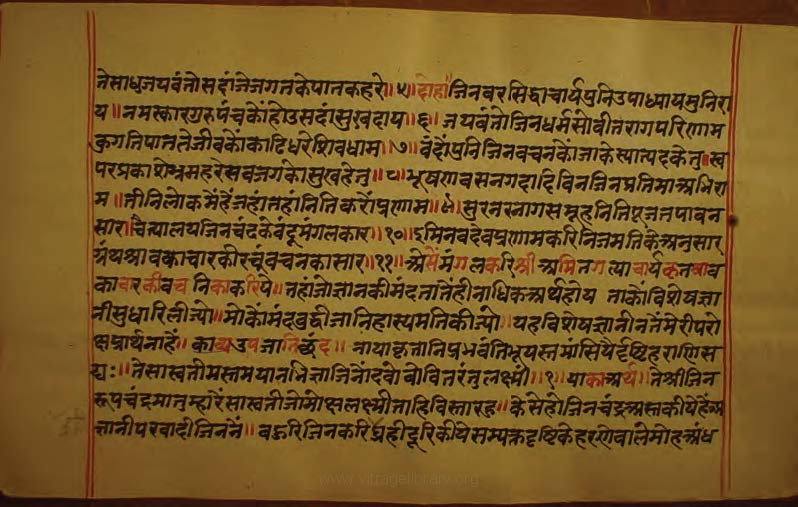 तेसाधुजयवंतोसदांजेजगतकेपातकहरे॥५॥दोहा॥जिनवरसिद्धाचार्यपुनिउपाध्यायमुनिरा
य॥नमस्कारगुरुपंचकोंहोउसदांसुखदाय॥६॥जयवंतोजिनधर्मसोवीतरागपरिणाम
कुगतिपाततेजीवकोंकाढिधरेशिवधाम॥७॥वंदोंपुनिजिनवचनकोंजाकेस्यात्पदकेतु॥स्व
परप्रकाशेभ्रमहरेसबजगकोसुखहेतु॥८॥भूषणवसनगदादिविनजिनप्रतिमाअभिरा
म॥तीनिलोकमेंहैंजहांतहांनितिकरोंप्रणाम॥९॥सुरनरनागसमूहनितिपूजतपावन
सार॥चैत्यालयजिनचंदकेवंदूमंगलकार॥१०॥इमिनवदेवप्रणामकरिनिजमतिकैअनुसार
ग्रंथश्रावकाचारकीरचूंवचनकासार॥११॥अैसेंमंगलकरिश्रीअमितगत्याचार्यकृतश्राव
काचारकीवचनिकाकरिये॥तहांजोज्ञानकीमंदतातेंहीनाधिकअर्थहोय ताकोंविशेषज्ञा
नीसुधारिलीज्यो॥मोकोंमंदबुद्धीजानिहास्यमतिकीज्यो॥यहविशेषज्ञानीनतेंमेरीपरो
क्षप्रार्थनाहै॥काव्यउपजातिछंद॥नापाकृतानिप्रभवंतिभूयस्तमांसियैर्दृष्टिहराणिस
द्यः॥तेसास्वतीमस्तमयानभिज्ञाजिनेंदवोवोवितरंतुलक्ष्मी॥१॥याकाअर्थ॥तेश्रीजिन
रूपचंद्रमातुम्हारेंसास्वतीजोमोक्षलक्ष्मीताहिविस्तारहु॥केसेहोजिनचंद्रअस्तकीयेहैंअ
ज्ञानीपरवादीजिननें॥बहुरिजिनकरिग्रहीदूरिकीयेसम्यक्तदृष्टिकेहरणेवालेमोहअंध
www.vitragelibrary.org